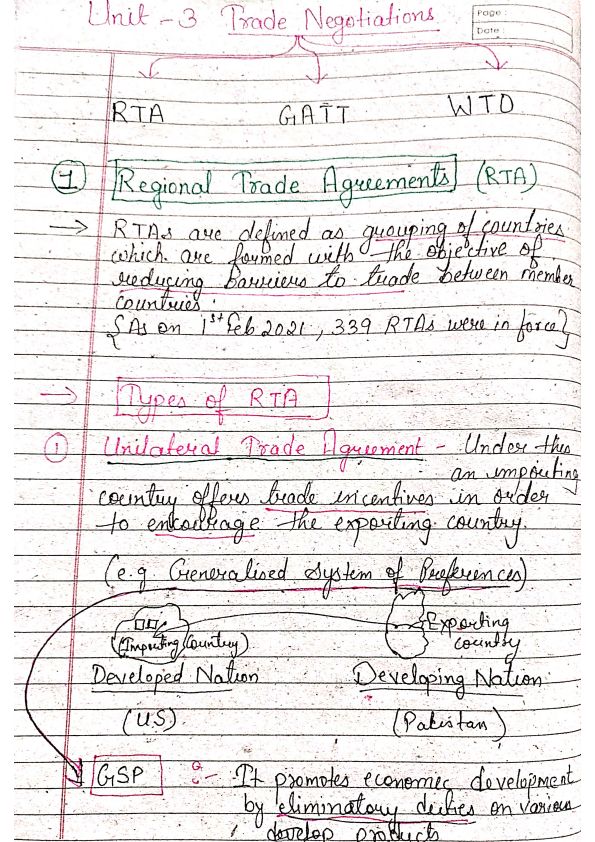 Unit - 3 Trade Negotiations
Page :
Date :
RTA GATT WTO
1 Regional Trade Agreements (RTA)
→ RTAs are defined as grouping of countries
which are formed with the objective of
reducing barriers to trade between member
countries.
{As on 1st Feb 2021, 339 RTAs were in force}
→ Types of RTA
1 Unilateral Trade Agreement - Under this
an importing
country offers trade incentives in order
to encourage the exporting country.
(e.g Generalised System of Preferences)
(Importing Country) Exporting
country
Developed Nation Developing Nation
(US) (Pakistan)
GSP :- It promotes economic development
by eliminatory duties on various
develop products